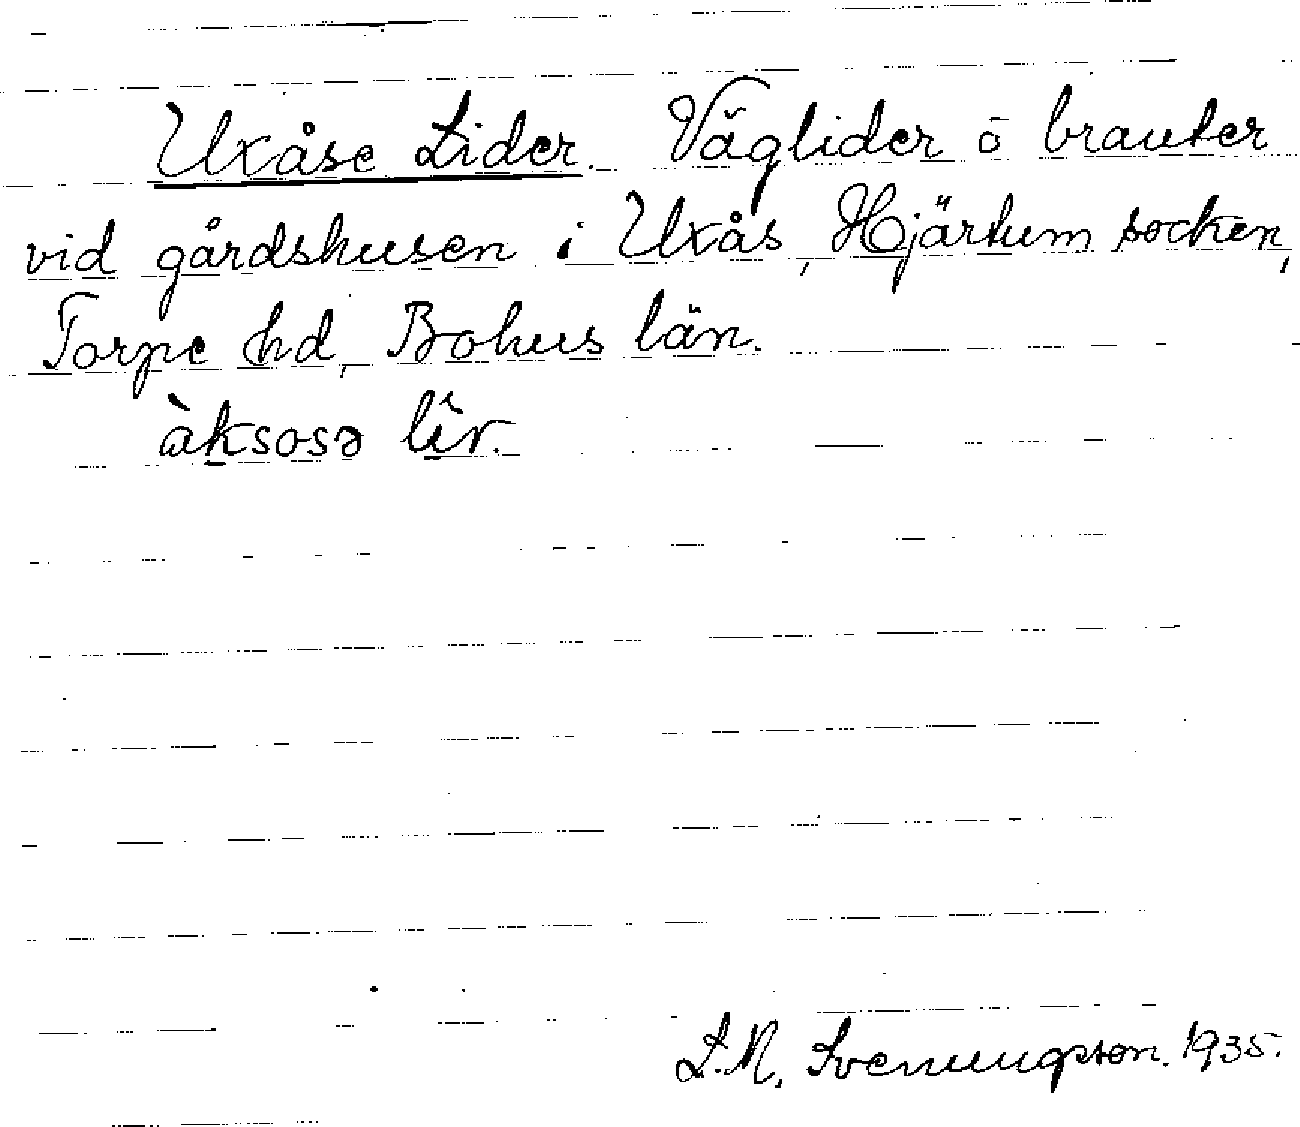 Uxåse Lider. Väglider ō branter
vid gårdshusen i Uxås, Hjärtum socken,
Torpe hd, Bohus län.
àksosə lîr.
L.M. Svenungsson. 1935.